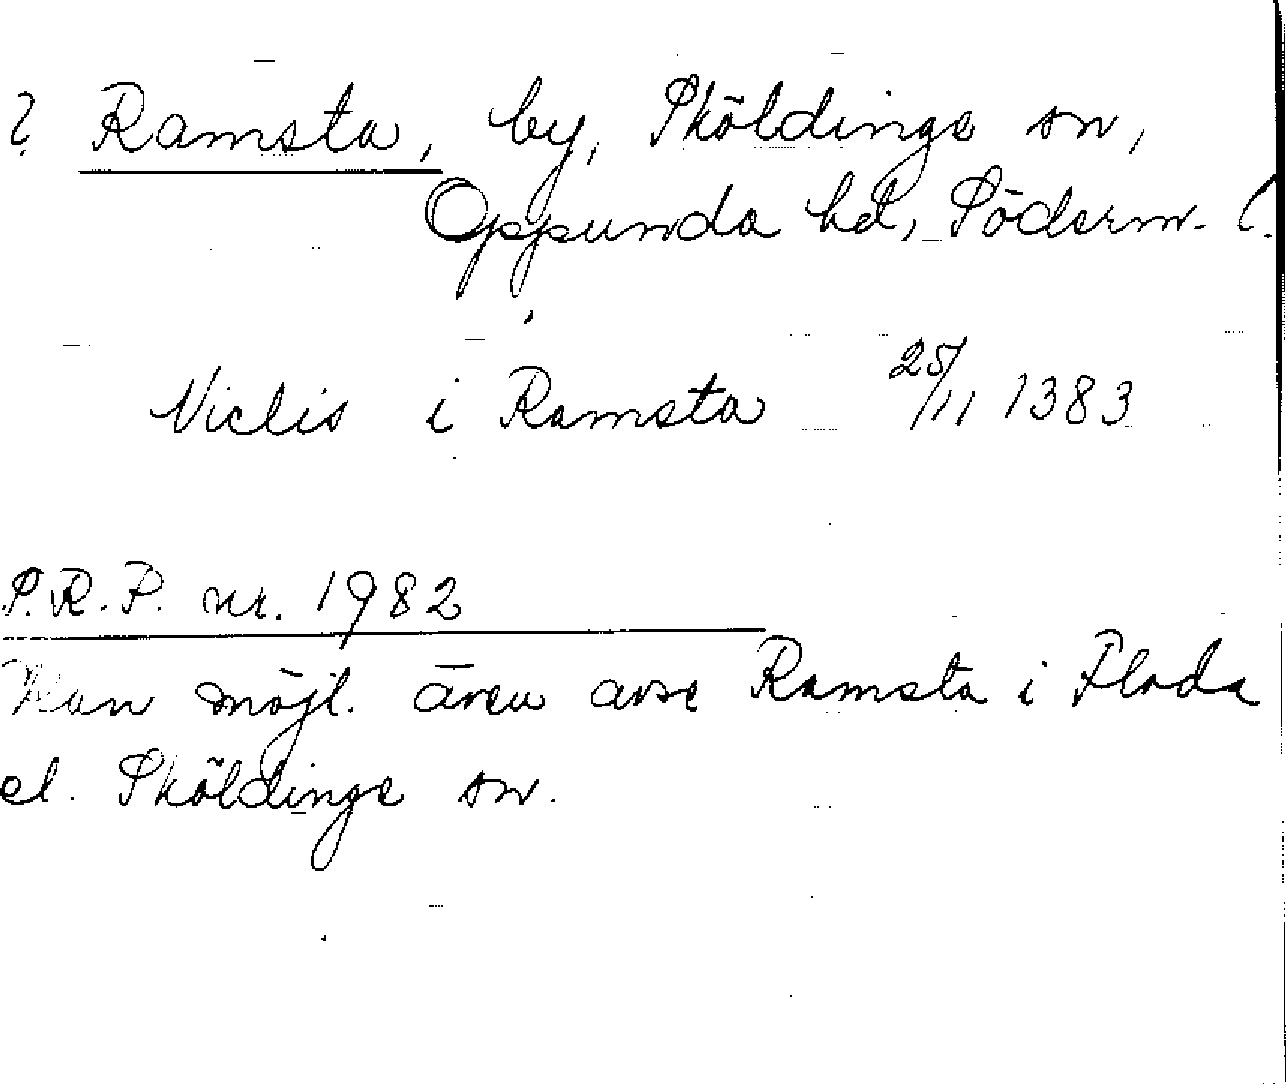 ? Ramsta, by, Sköldinge sn,
Oppunda hd, Söderm. l.
Niclis i Ramsta 25/11 1383
S.R.P. nr. 1982
Kan möjl. även avse Ramsta i Floda
el. Sköldinge sn.